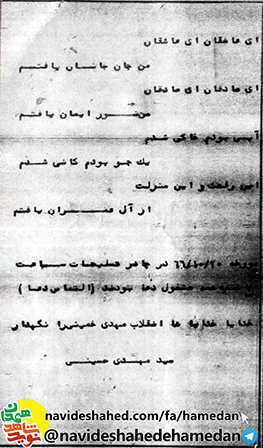 ای عاشقان ای عاشقان
من جان جانان یافتم
ای صادقان ای صادقان
من نور ایمان یافتم
آبی بودم خاکی شدم
یک جو بودم کافی شدم
این رفعت و این منزلت
از آل عمران یافتم
مورخه ۶۶/۱۰/۲۰ در چادر تبلیغات ساعت
مشغول دعا بودند (التماس دعا)
خدایا خدایا تا انقلاب مهدی خمینی را نگهدار
سید مهدی حسینی
navideshahed.com/fa/hamedan
@navideshahedehamedan
نوید شاهد